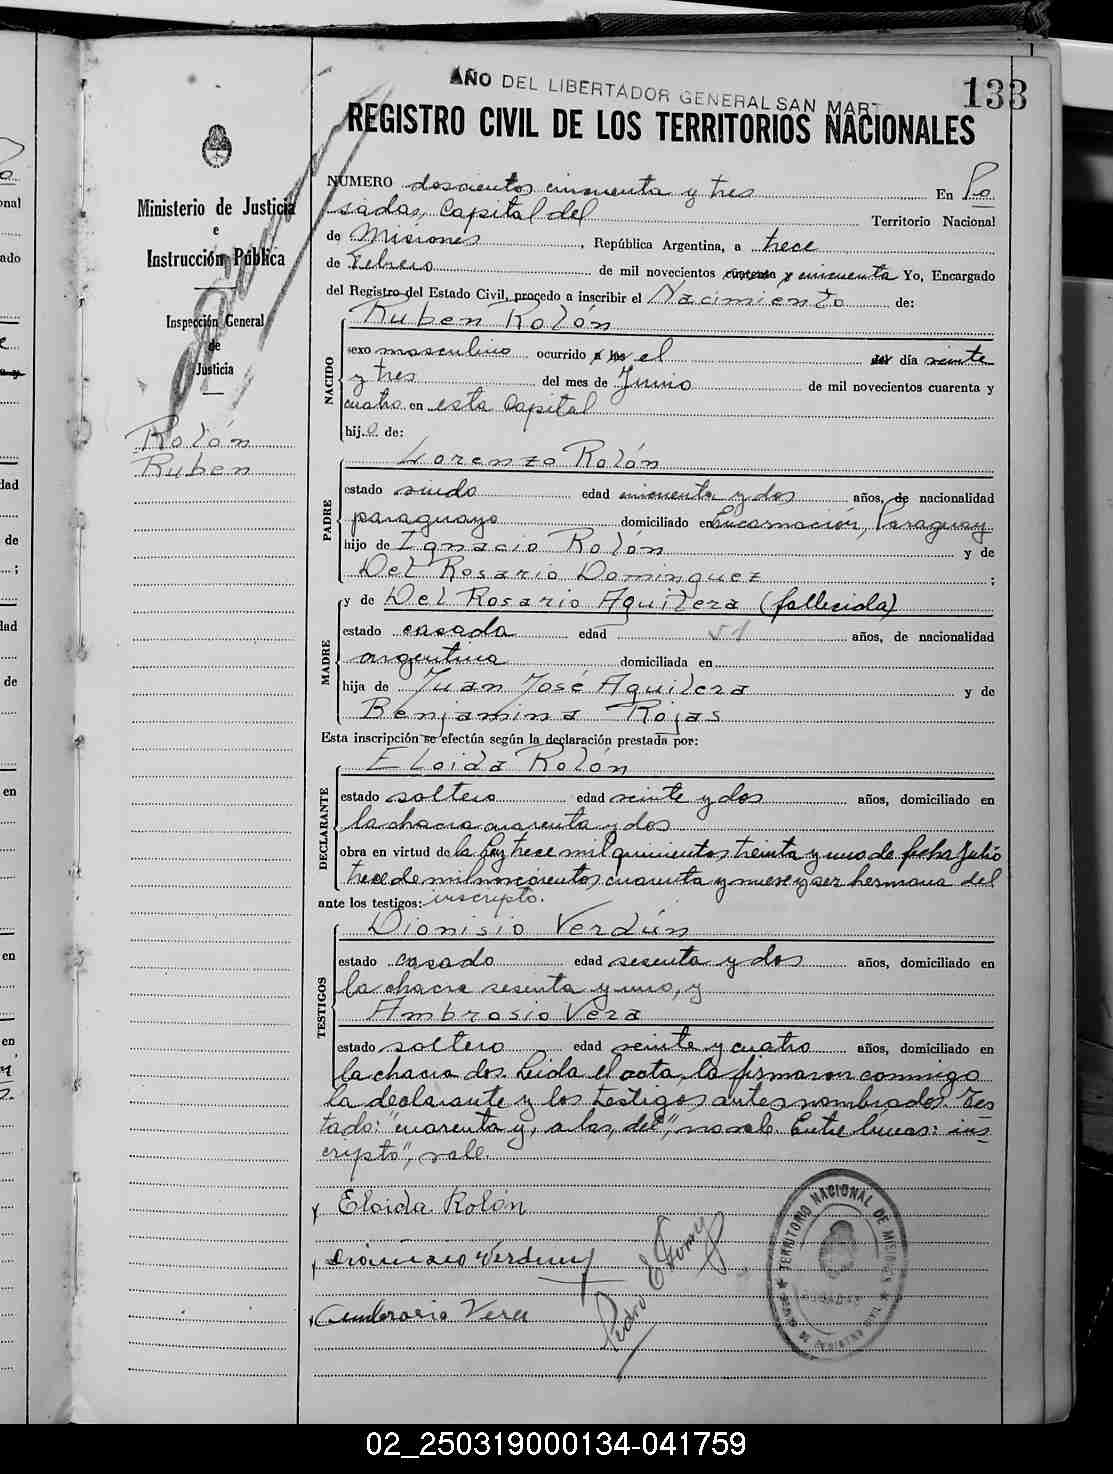 AÑO DEL LIBERTADOR GENERAL SAN MART
133
REGISTRO CIVIL DE LOS TERRITORIOS NACIONALES
Ministerio de Justicia
e
Instrucción Pública
Inspección General
de
Justicia
Rolón
Ruben
NÚMERO doscientos cincuenta y tres En Po
sadas, Capital del Territorio Nacional
de Misiones, República Argentina, a trece
de Febrero de mil novecientos cuarenta y cincuenta Yo, Encargado
del Registro del Estado Civil, procedo a inscribir el Nacimiento de:
NACIDO
Ruben Rolón
sexo masculino ocurrido a las el del día veinte
y tres del mes de Junio de mil novecientos cuarenta y
cuatro en esta Capital
hijo de:
PADRE
Lorenzo Rolón
estado viudo edad cincuenta y dos años, de nacionalidad
paraguayo domiciliado en Encarnación, Paraguay
hijo de Ignacio Rolón y de
Del Rosario Dominguez ;
MADRE
y de Del Rosario Aguilera (fallecida)
estado casada edad 51 años, de nacionalidad
argentina domiciliada en
hija de Juan José Aguilera y de
Benjamina Rojas
Esta inscripción se efectúa según la declaración prestada por:
DECLARANTE
Eloida Rolón
estado soltera edad veinte y dos años, domiciliado en
la chacra cuarenta y dos
obra en virtud de la Ley trece mil quinientos treinta y uno de fecha Julio
trece de mil novecientos cuarenta y nueve y ser hermana del
ante los testigos: inscripto.
TESTIGOS
Dionisio Verdún
estado casado edad sesenta y dos años, domiciliado en
la chacra sesenta y uno, y
Ambrosio Vera
estado soltero edad veinte y cuatro años, domiciliado en
la chacra dos. Leida el acta, la firmaron conmigo
la declarante y los testigos antes nombrados. Tes
tado: "cuarenta y, a las, del", no vale. Entre lineas: ins
cripto", vale.
Eloida Rolón
Dionisio Verdun
Ambrosio Vera
Pedro E
TERRITORIO NACIONAL DE MISIONES
02_250319000134-041759